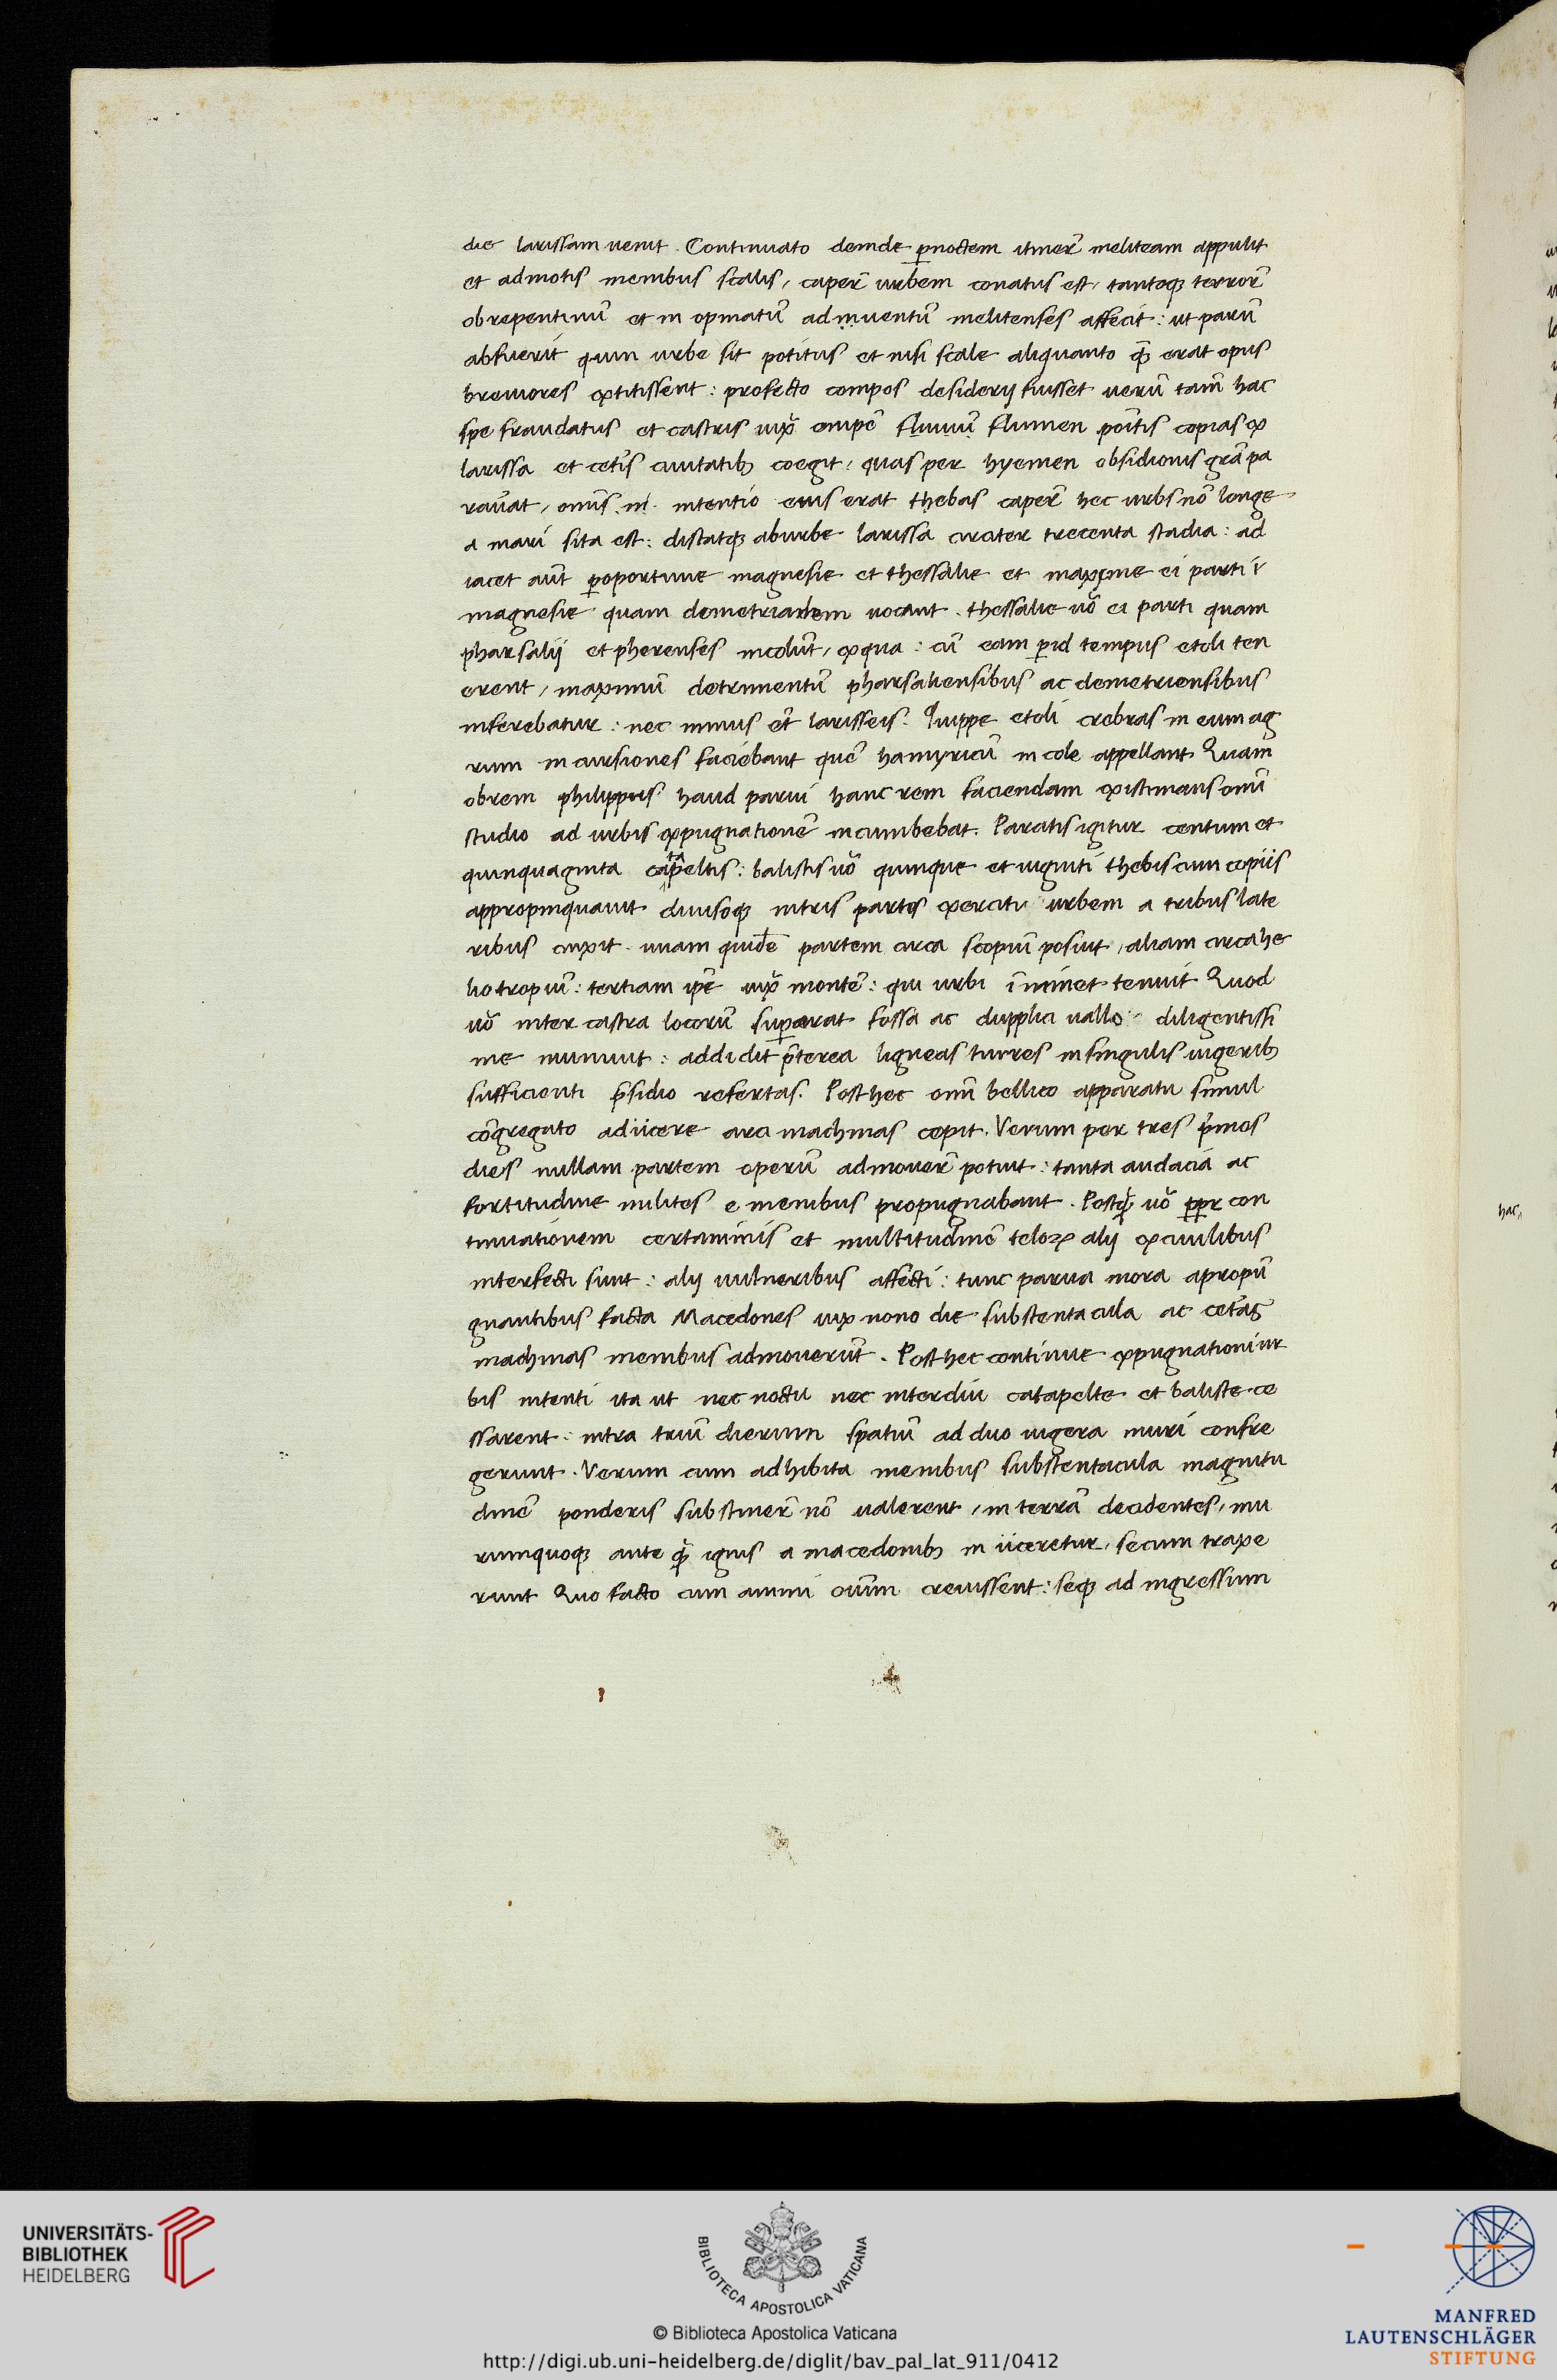 die larissam uenit. Continuato deinde pnoctem itinerẽ meliteam appulit
et admotis menibus scalis, caperẽ urbem conatus est, tantoqꝫ terrorẽ
obrepentinũ et in opinatũ adinuentũ melitenses affecit: ut parũ
abfuerit quin urbe sit potitus et nisi scale aliquanto qꝫ̃ erat opus
breuiores extitissent: profecto compos desiderij fuisset uerũ tam̃ hac
spe fraudatus et castris iux̃ enipẽ fluuiũ flumen poĩtis copias ex
larissa et cet̃is ciuitatibꝫ coegit, quas per hyemen obsidionis grã pa
rau̾at, om̃is .n̾. intentio eius erat thebas caperẽ hec urbs nõ longe
a mari sita est: distatqꝫ aburbe larissa circiter trecenta stadia: ad
iacet aũt poportune magnesie et thessalie et maxime ei parti i
magnesie quam demetriadem uocant. thessalie uõ ei parti quam
pharsalij et pherenses incolũt, exqua: cũ eam pid tempus etoli ten
erent, maximũ detrimentũ pharsaliensibus ac demetriensibus
inferebatur: nec minus et̃ larisseis. Quippe etoli crebras in eum ag
rum incursiones faciebant quẽ hamyricũ in cole appellant Quam
obrem philippus haud parui hanc rem faciendam existimans om̃i
studio ad urbis expugnationẽ incumbebat. Paratis igitur centum et
quinquaginta ca
ta
peltis: balistis uõ quinque et uiginti thebis cum copiis
appropinquauit diuisoqꝫ intris partes exercitu urbem a tribus late
ribus cinxit. unam quidẽ partem circa scopiũ posuit, aliam circa he
liotropiũ: tertiam ip̃e iux̃ montẽ: qui urbi ĩminet tenuit Quod
uõ inter castra locorũ superarat fossa ac dupplici uallo diligentissi
me muniuit: addidit p̃terea ligneas turres in singulis iugeribꝫ
sufficienti p̃sidio refertas. Post hec om̃i bellico apparatu simul
cõgregato adiicere arci machinas cepit. Verum per tres p̃mos
dies nullam partem operũ admouerẽ potuit: tanta audacia ac
fortitudine milites e menibus propugnabant. Postqꝫ̃ uõ ppr con
tinuationem certaminis et multitudinẽ teloꝝ alij exciuilibus
interfecti sunt: alij uulneribus affecti: tunc parua mora apropũ
gnantibus facta Macedones uix nono die substentacula ac cet̃as
machinas menibus admouerũt. Post hec continue expugnationi ur
bis intenti ita ut nec noctu nec interdiu catapelte et baliste ce
ssarent: intra triũ dierum spatiũ ad duo iugera muri confre
gerunt. Verum cum adhibita menibus substentacula magnitu
dinẽ ponderis substinerẽ nõ ualerent, in terrã decidentes, mu
rumquoqꝫ ante qꝫ̃ ignis a macedonibꝫ in iiceretur, secum traxe
runt Quo facto cum animi ouim creuissent: seqꝫ ad ingressum
hac,
UNIVERSITÄTS-
BIBLIOTHEK
HEIDELBERG
BIBLIOTECA APOSTOLICA VATICANA
© Biblioteca Apostolica Vaticana
http://digi.ub.uni-heidelberg.de/diglit/bav_pal_lat_911/0412
MANFRED
LAUTENSCHLÄGER
STIFTUNG